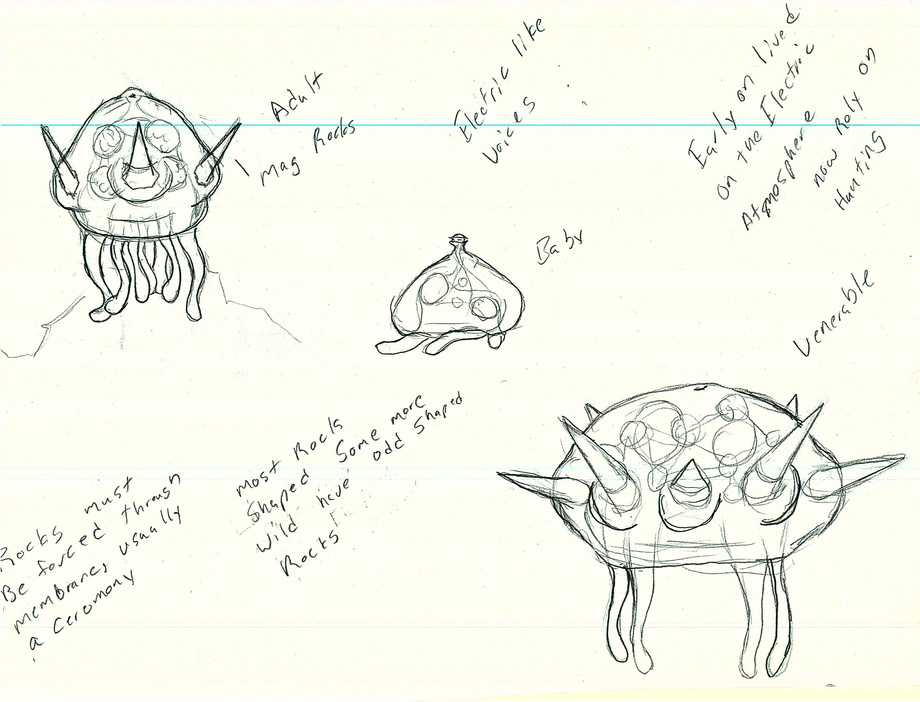 Adult
Mag Rocks
Electric like
voices
Early on lived
on the Electric
Atmosphere
now Roly on
Hunting
Baby
Venerable
Rocks must
Be forced through
membrane, usually
a ceromony
most Rocks
Shaped Some more
wild have odd Shaped
Rocks